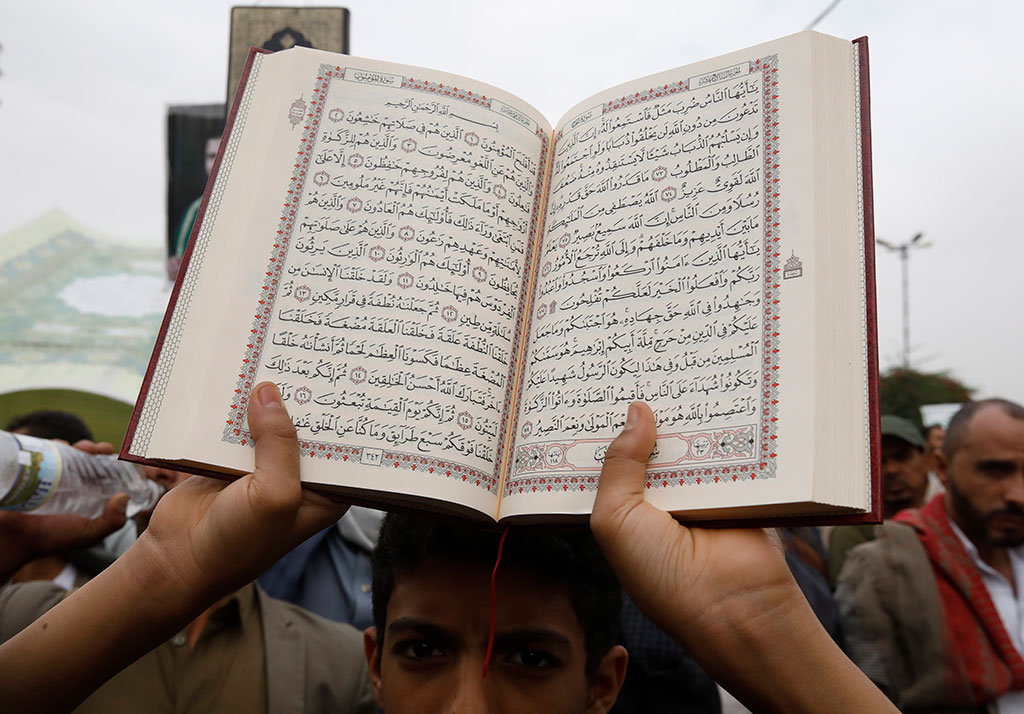 الجزء السابع عشر
يَـٰٓأَيُّهَا ٱلنَّاسُ ضُرِبَ مَثَلٌ فَٱسْتَمِعُوا۟ لَهُۥٓ إِنَّ
تَدْعُونَ مِن دُونِ ٱللَّهِ لَن يَخْلُقُوا۟ ذُبَابًا وَلَوِ ٱجْتَمَعُوا۟
وَإِن يَسْلُبْهُمُ ٱلذُّبَابُ شَيْـًٔا لَّا يَسْتَنقِذُوهُ مِنْهُ
ٱلطَّالِبُ وَٱلْمَطْلُوبُ ٧٣ مَا قَدَرُوا۟ ٱللَّهَ حَقَّ قَدْرِهِۦٓ
ٱللَّهَ لَقَوِىٌّ عَزِيزٌ ٧٤ ٱللَّهُ يَصْطَفِى مِنَ ٱلْمَلَـٰٓئِكَةِ
رُسُلًا وَمِنَ ٱلنَّاسِ إِنَّ ٱللَّهَ سَمِيعٌۢ بَصِيرٌ ٧٥
مَا بَيْنَ أَيْدِيهِمْ وَمَا خَلْفَهُمْ وَإِلَى ٱللَّهِ تُرْجَعُ ٱلْأُمُورُ
يَـٰٓأَيُّهَا ٱلَّذِينَ ءَامَنُوا۟ ٱرْكَعُوا۟ وَٱسْجُدُوا۟ وَٱعْبُدُوا۟
رَبَّكُمْ وَٱفْعَلُوا۟ ٱلْخَيْرَ لَعَلَّكُمْ تُفْلِحُونَ ٧٧
وَجَـٰهِدُوا۟ فِى ٱللَّهِ حَقَّ جِهَادِهِۦ هُوَ ٱجْتَبَىٰكُمْ وَمَا جَعَلَ
عَلَيْكُمْ فِى ٱلدِّينِ مِنْ حَرَجٍ مِّلَّةَ أَبِيكُمْ إِبْرَٰهِيمَ هُوَ سَمَّىٰكُمُ
ٱلْمُسْلِمِينَ مِن قَبْلُ وَفِى هَـٰذَا لِيَكُونَ ٱلرَّسُولُ شَهِيدًا عَلَيْكُمْ
وَتَكُونُوا۟ شُهَدَآءَ عَلَى ٱلنَّاسِ فَأَقِيمُوا۟ ٱلصَّلَوٰةَ وَءَاتُوا۟ ٱلزَّكَوٰةَ
وَٱعْتَصِمُوا۟ بِٱللَّهِ هُوَ ٱلْمَوْلَىٰ وَنِعْمَ ٱلنَّصِيرُ ٧٨
سُورَةُ المُؤْمِنُون
بِسْمِ ٱللَّهِ ٱلرَّحْمَـٰنِ ٱلرَّحِيمِ
قَدْ أَفْلَحَ ٱلْمُؤْمِنُونَ ١ ٱلَّذِينَ هُمْ فِى صَلَاتِهِمْ خَـٰشِعُونَ ٢
وَٱلَّذِينَ هُمْ عَنِ ٱللَّغْوِ مُعْرِضُونَ ٣ وَٱلَّذِينَ هُمْ لِلزَّكَوٰةِ
فَـٰعِلُونَ ٤ وَٱلَّذِينَ هُمْ لِفُرُوجِهِمْ حَـٰفِظُونَ ٥ إِلَّا عَلَىٰٓ
أَزْوَٰجِهِمْ أَوْ مَا مَلَكَتْ أَيْمَـٰنُهُمْ فَإِنَّهُمْ غَيْرُ مَلُومِينَ ٦
فَمَنِ ٱبْتَغَىٰ وَرَآءَ ذَٰلِكَ فَأُو۟لَـٰٓئِكَ هُمُ ٱلْعَادُونَ ٧ وَٱلَّذِينَ هُمْ
لِأَمَـٰنَـٰتِهِمْ وَعَهْدِهِمْ رَٰعُونَ ٨ وَٱلَّذِينَ هُمْ عَلَىٰ صَلَوَٰتِهِمْ
يُحَافِظُونَ ٩ أُو۟لَـٰٓئِكَ هُمُ ٱلْوَٰرِثُونَ ١٠ ٱلَّذِينَ يَرِثُونَ
ٱلْفِرْدَوْسَ هُمْ فِيهَا خَـٰلِدُونَ ١١ وَلَقَدْ خَلَقْنَا ٱلْإِنسَـٰنَ مِن
سُلَـٰلَةٍ مِّن طِينٍ ١٢ ثُمَّ جَعَلْنَـٰهُ نُطْفَةً فِى قَرَارٍ مَّكِينٍ ١٣ ثُمَّ
خَلَقْنَا ٱلنُّطْفَةَ عَلَقَةً فَخَلَقْنَا ٱلْعَلَقَةَ مُضْغَةً فَخَلَقْنَا
ٱلْمُضْغَةَ عِظَـٰمًا فَكَسَوْنَا ٱلْعِظَـٰمَ لَحْمًا ثُمَّ أَنشَأْنَـٰهُ خَلْقًا
ءَاخَرَ فَتَبَارَكَ ٱللَّهُ أَحْسَنُ ٱلْخَـٰلِقِينَ ١٤ ثُمَّ إِنَّكُم بَعْدَ ذَٰلِكَ
لَمَيِّتُونَ ١٥ ثُمَّ إِنَّكُمْ يَوْمَ ٱلْقِيَـٰمَةِ تُبْعَثُونَ ١٦ وَلَقَدْ
خَلَقْنَا فَوْقَكُمْ سَبْعَ طَرَآئِقَ وَمَا كُنَّا عَنِ ٱلْخَلْقِ غَـٰفِلِينَ
٣٤٢